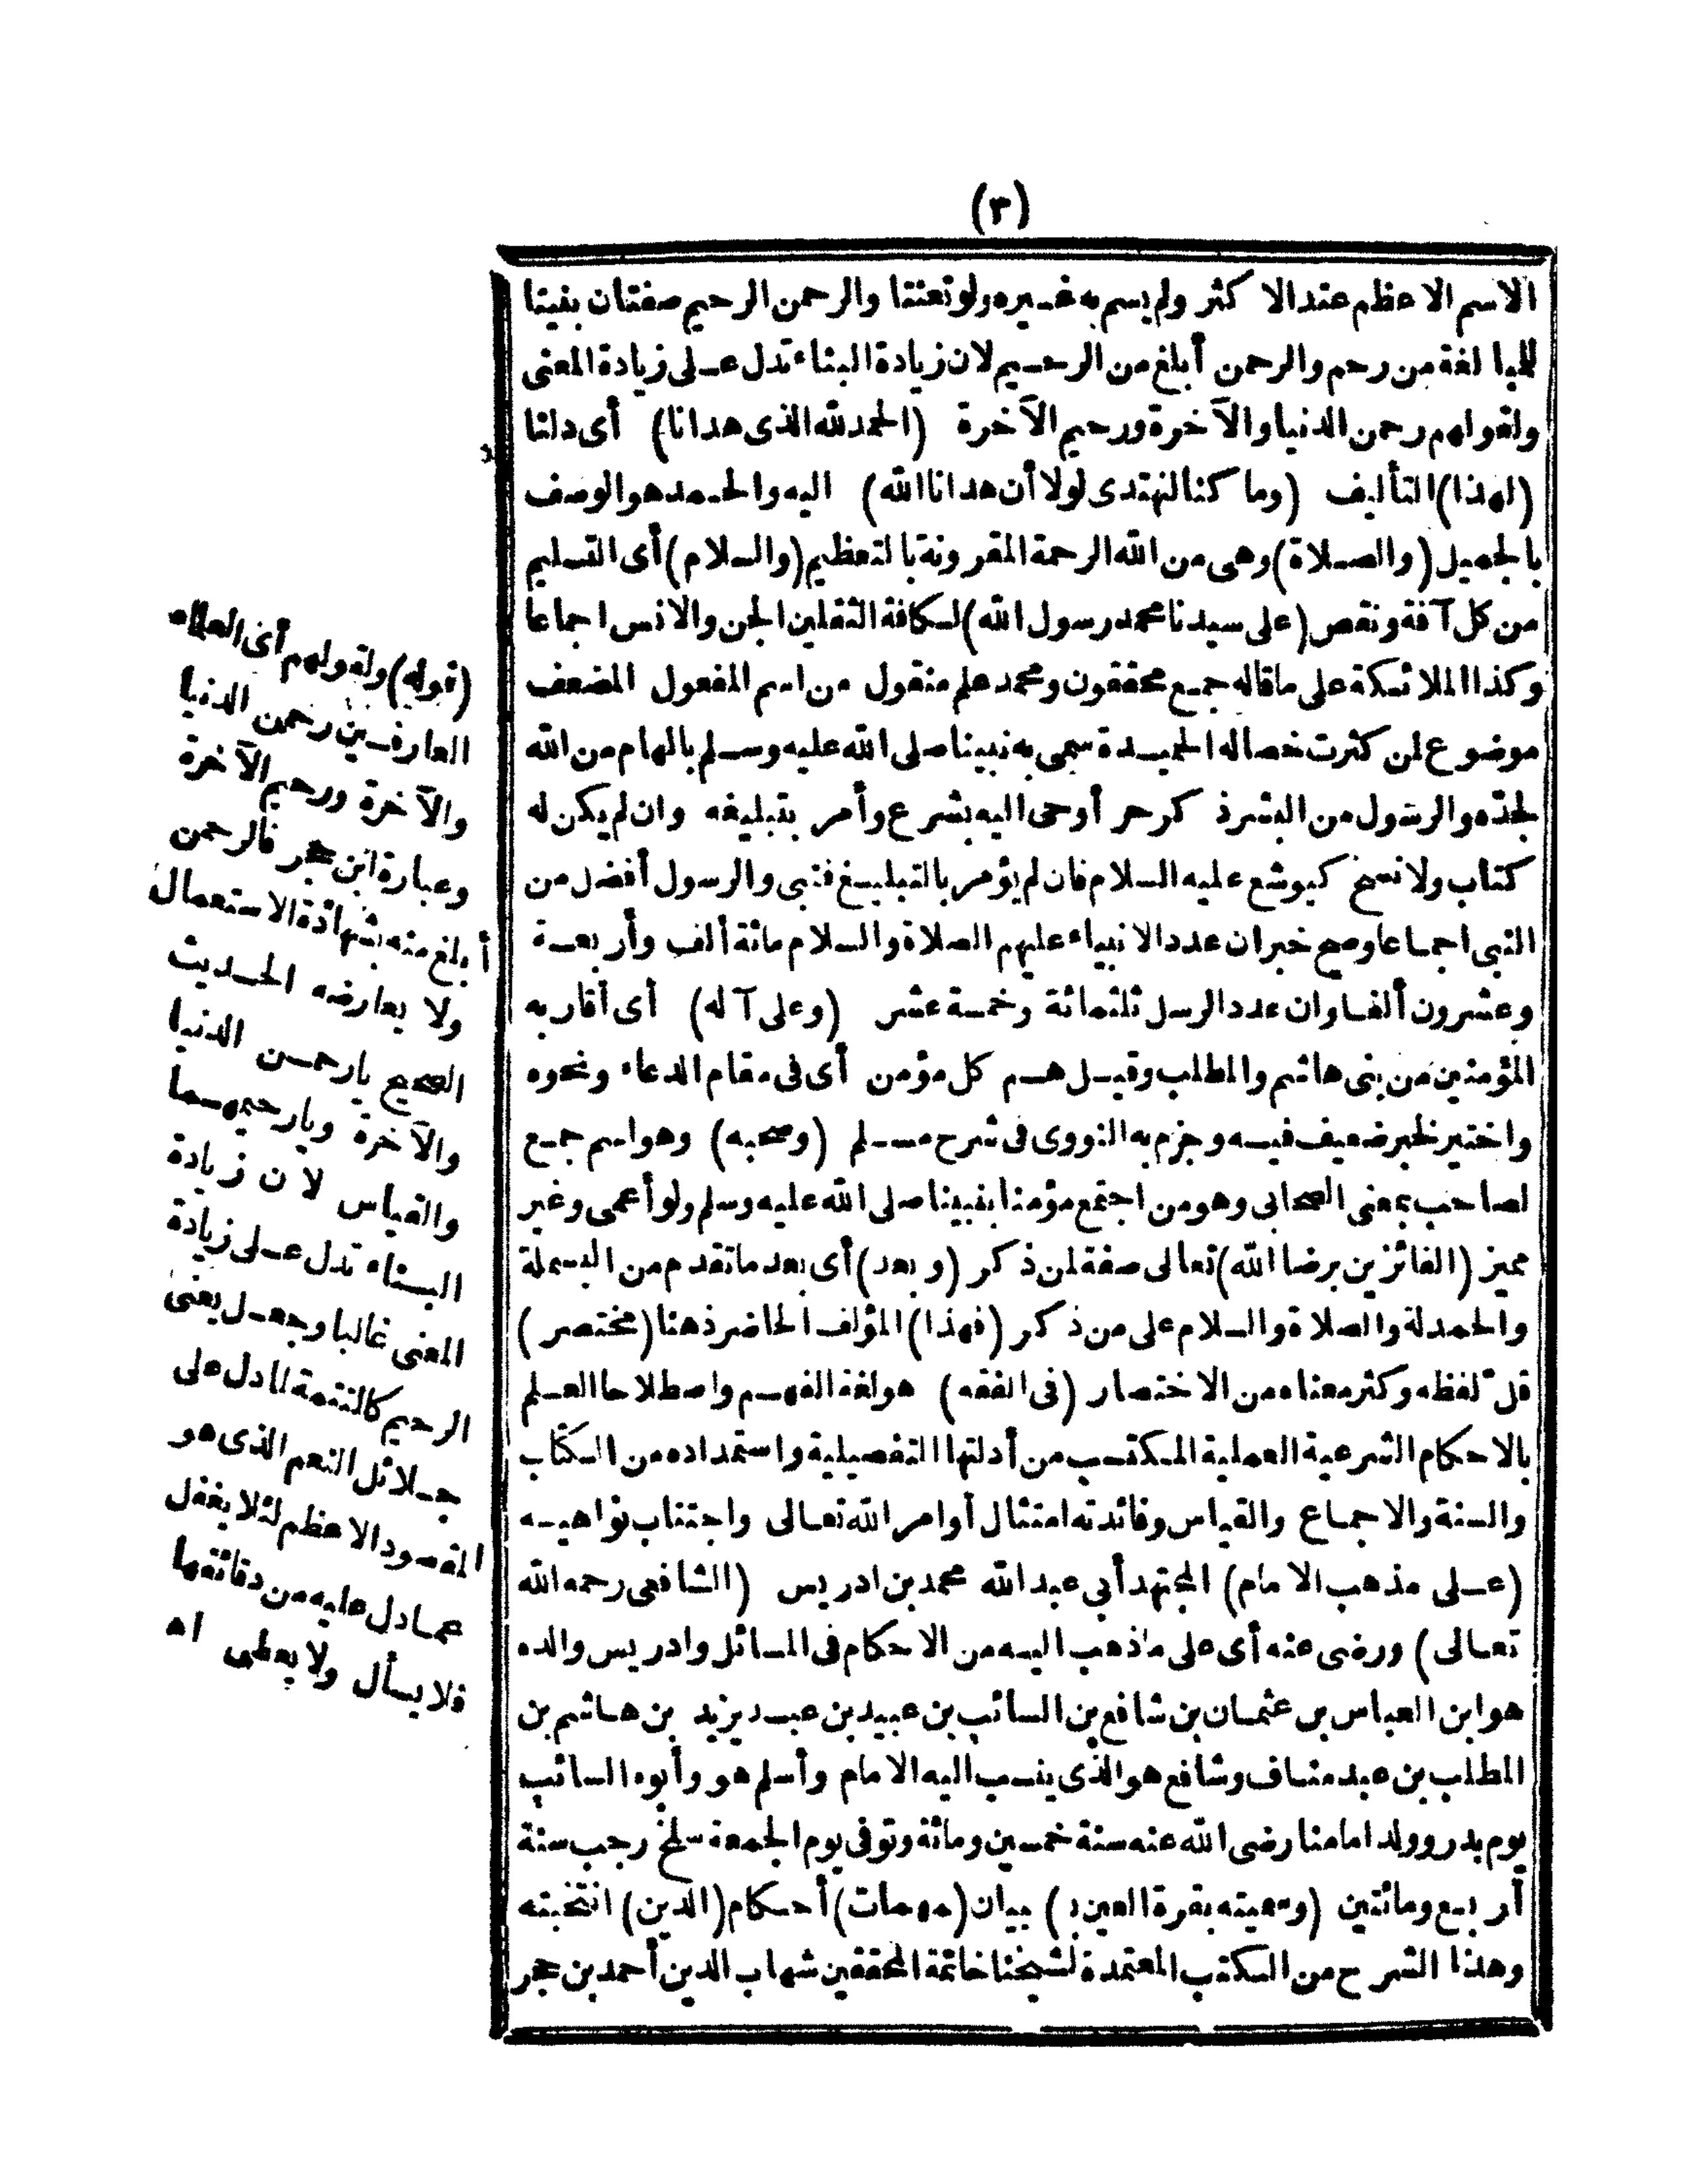 (٣)
الاسم الاعظم عند الاكثر ولم يسم به غيره ولو تعنتا والرحمن الرحيم صفتان بنيتا
للمبالغة من رحم والرحمن أبلغ من الرحيم لان زيادة البناء تدل على زيادة المعنى
ولقولهم رحمن الدنيا والآخرة ورحيم الآخرة (الحمد لله الذى هدانا) أى دلنا
(لهذا) التأليف (وما كنا لنهتدى لولا أن هدانا الله) اليه والحمد هو الوصف
بالجميل (والصلاة) وهى من الله الرحمة المقرونة بالتعظيم (والسلام) أى التسليم
من كل آفة ونقص (على سيدنا محمد رسول الله) لكافة الثقلين الجن والانس اجماعا
وكذا الملائكة على ما قاله جمع محققون ومحمد علم منقول من اسم المفعول المضعف
موضوع لمن كثرت خصاله الحميدة سمى به نبينا صلى الله عليه وسلم بالهام من الله
لجده والرسول من البشر ذكر حر أوحى اليه بشرع وأمر بتبليغه وان لم يكن له
كتاب ولا نسخ كيوشع عليه السلام فان لم يؤمر بالتبليغ فنبى والرسول أفضل من
النبى اجماعا وصح خبر ان عدد الانبياء عليهم الصلاة والسلام مائة ألف وأربعة
وعشرون ألفا وان عدد الرسل ثلثمائة وخمسة عشر (وعلى آله) أى أقاربه
المؤمنين من بنى هاشم والمطلب وقيل هم كل مؤمن أى فى مقام الدعاء ونحوه
واختير لخبر ضعيف فيه وجزم به النووى فى شرح مسلم (وصحبه) وهو اسم جمع
لصاحب بمعنى الصحابى وهو من اجتمع مؤمنا بنبينا صلى الله عليه وسلم ولو أعمى وغير
مميز (الفائزين برضا الله) تعالى صفة لمن ذكر (وبعد) أى بعد ما تقدم من البسملة
والحمدلة والصلاة والسلام على من ذكر (فهذا) المؤلف الحاضر ذهنا (مختصر)
قل لفظه وكثر معناه من الاختصار (فى الفقه) هو لغة الفهم واصطلاحا العلم
بالاحكام الشرعية العملية المكتسب من أدلتها التفصيلية واستمداده من الكتاب
والسنة والاجماع والقياس وفائدته امتثال أوامر الله تعالى واجتناب نواهيه
(على مذهب الامام) المجتهد أبي عبد الله محمد بن ادريس (الشافعى رحمه الله
تعالى) ورضى عنه أى على ما ذهب اليه من الاحكام فى المسائل وادريس والده
هو ابن العباس بن عثمان بن شافع بن السائب بن عبيد بن عبد يزيد بن هاشم بن
المطلب بن عبد مناف وشافع هو الذى ينسب اليه الامام وأسلم هو وأبوه السائب
يوم بدر وولد امامنا رضى الله عنه سنة خمسين ومائة وتوفى يوم الجمعة سلخ رجب سنة
أربع ومائتين (وسميته بقرة العين ب) بيان (مهمات) أحكام (الدين) انتخبته
وهذا الشرح من الكتب المعتمدة لشيخنا خاتمة المحققين شهاب الدين أحمد بن حجر
(قوله) ولقولهم أى العلماء
العارفين رحمن الدنيا
والآخرة ورحيم الآخرة
وعبارة ابن حجر فالرحمن
أبلغ منه بشهادة الاستعمال
ولا يعارضه الحديث
الصحيح يا رحمن الدنيا
والآخرة ويا رحيمهما
والقياس لان زيادة
البناء تدل على زيادة
المعنى غالبا وجعل يعنى
الرحيم كالتتمة لما دل على
جلائل النعم الذى هو
المقصود الاعظم لئلا يغفل
عما دل عليه من دقائقها
فلا يسأل ولا يعطى اه